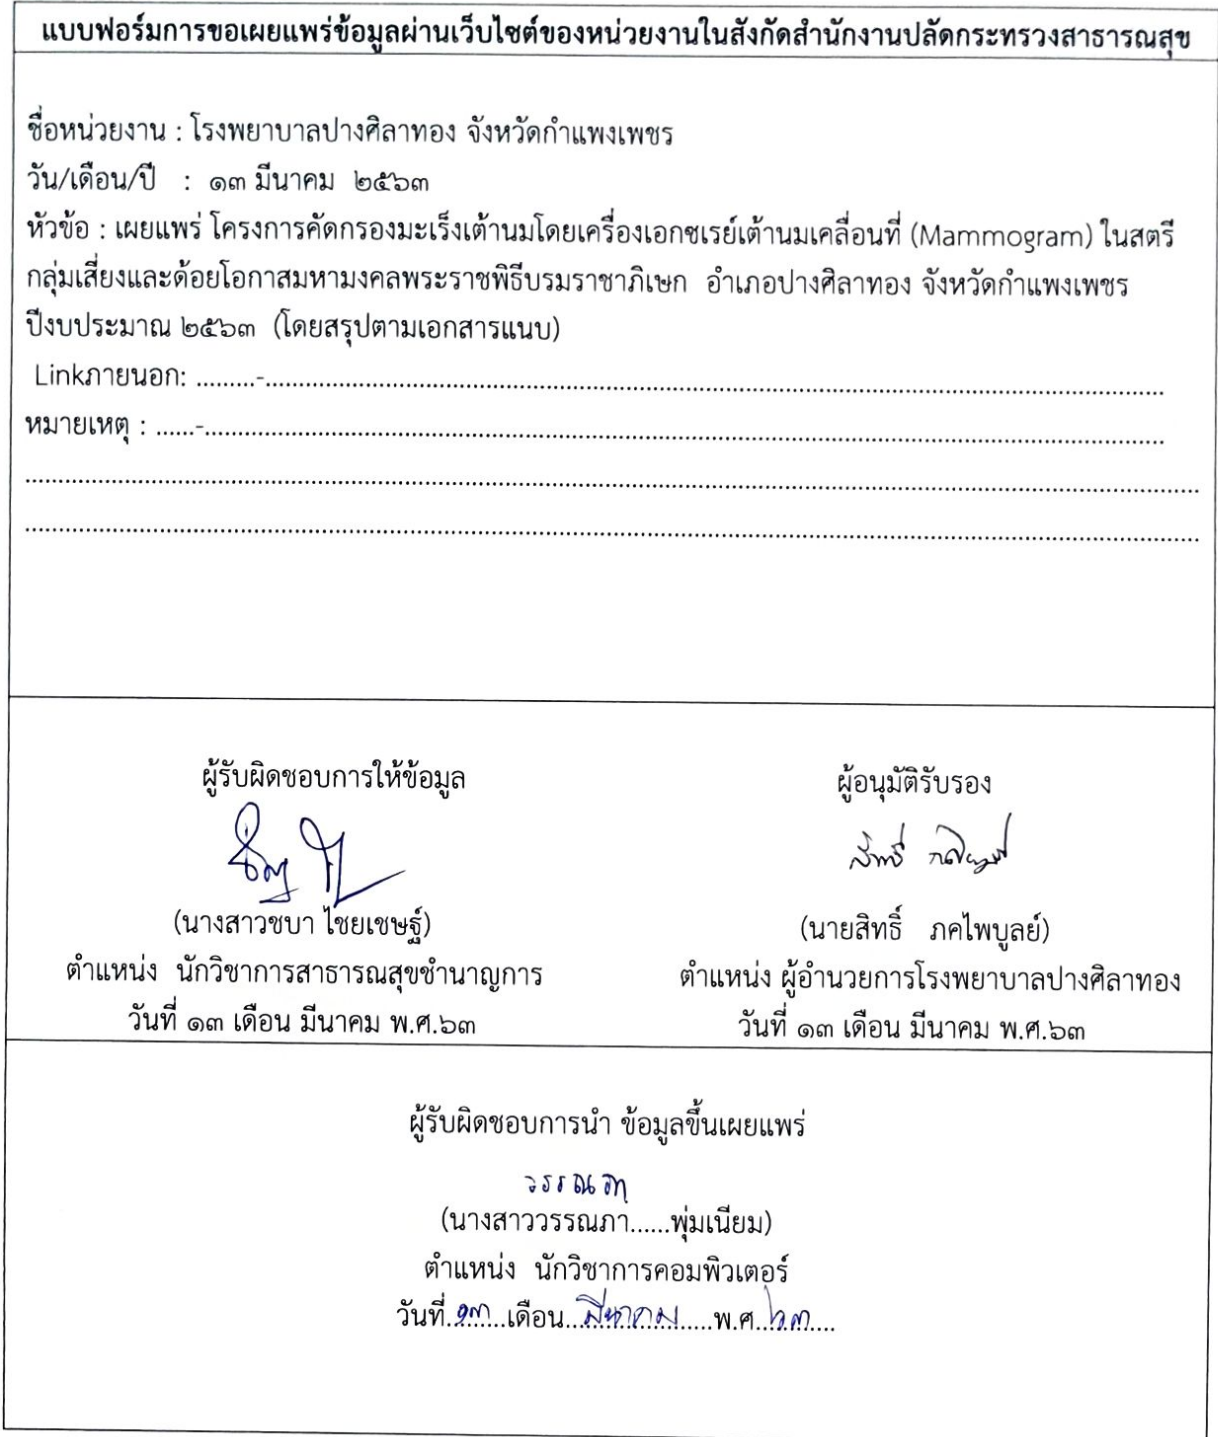 แบบฟอร์มการขอเผยแพร่ข้อมูลผ่านเว็บไซต์ของหน่วยงานในสังกัดสำนักงานปลัดกระทรวงสาธารณสุข
ชื่อหน่วยงาน : โรงพยาบาลปางศิลาทอง จังหวัดกำแพงเพชร
วัน/เดือน/ปี : ๑๓ มีนาคม ๒๕๖๓
หัวข้อ : เผยแพร่ โครงการคัดกรองมะเร็งเต้านมโดยเครื่องเอกซเรย์เต้านมเคลื่อนที่ (Mammogram) ในสตรี
กลุ่มเสี่ยงและด้อยโอกาสมหามงคลพระราชพิธีบรมราชาภิเษก อำเภอปางศิลาทอง จังหวัดกำแพงเพชร
ปีงบประมาณ ๒๕๖๓ (โดยสรุปตามเอกสารแนบ)
Linkภายนอก: .........-..........
หมายเหตุ : ......-..........
ผู้รับผิดชอบการให้ข้อมูล
(นางสาวชบา ไชยเชษฐ์)
ตำแหน่ง นักวิชาการสาธารณสุขชำนาญการ
วันที่ ๑๓ เดือน มีนาคม พ.ศ.๖๓
ผู้อนุมัติรับรอง
(นายสิทธิ์ ภคไพบูลย์)
ตำแหน่ง ผู้อำนวยการโรงพยาบาลปางศิลาทอง
วันที่ ๑๓ เดือน มีนาคม พ.ศ.๖๓
ผู้รับผิดชอบการนำ ข้อมูลขึ้นเผยแพร่
วรรณภา
(นางสาววรรณภา......พุ่มเนียม)
ตำแหน่ง นักวิชาการคอมพิวเตอร์
วันที่.๑๓...เดือน...มีนาคม...พ.ศ..๖๓....